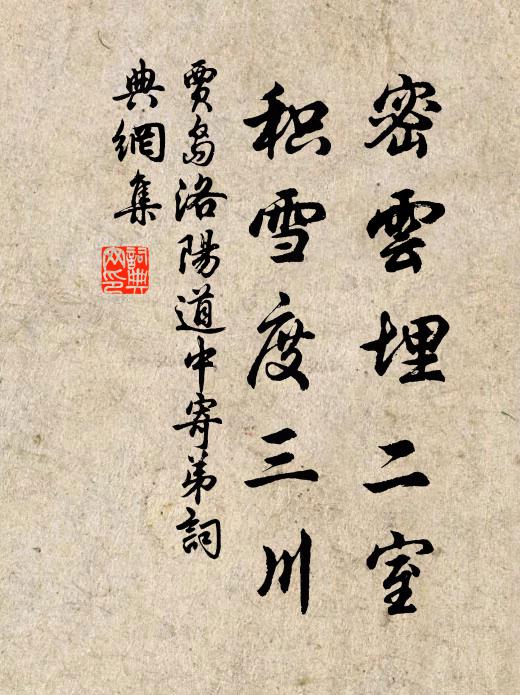 密雲埋二室
积雪度三川
賈島洛陽道中寄弟詞
典網集
詞典
文印